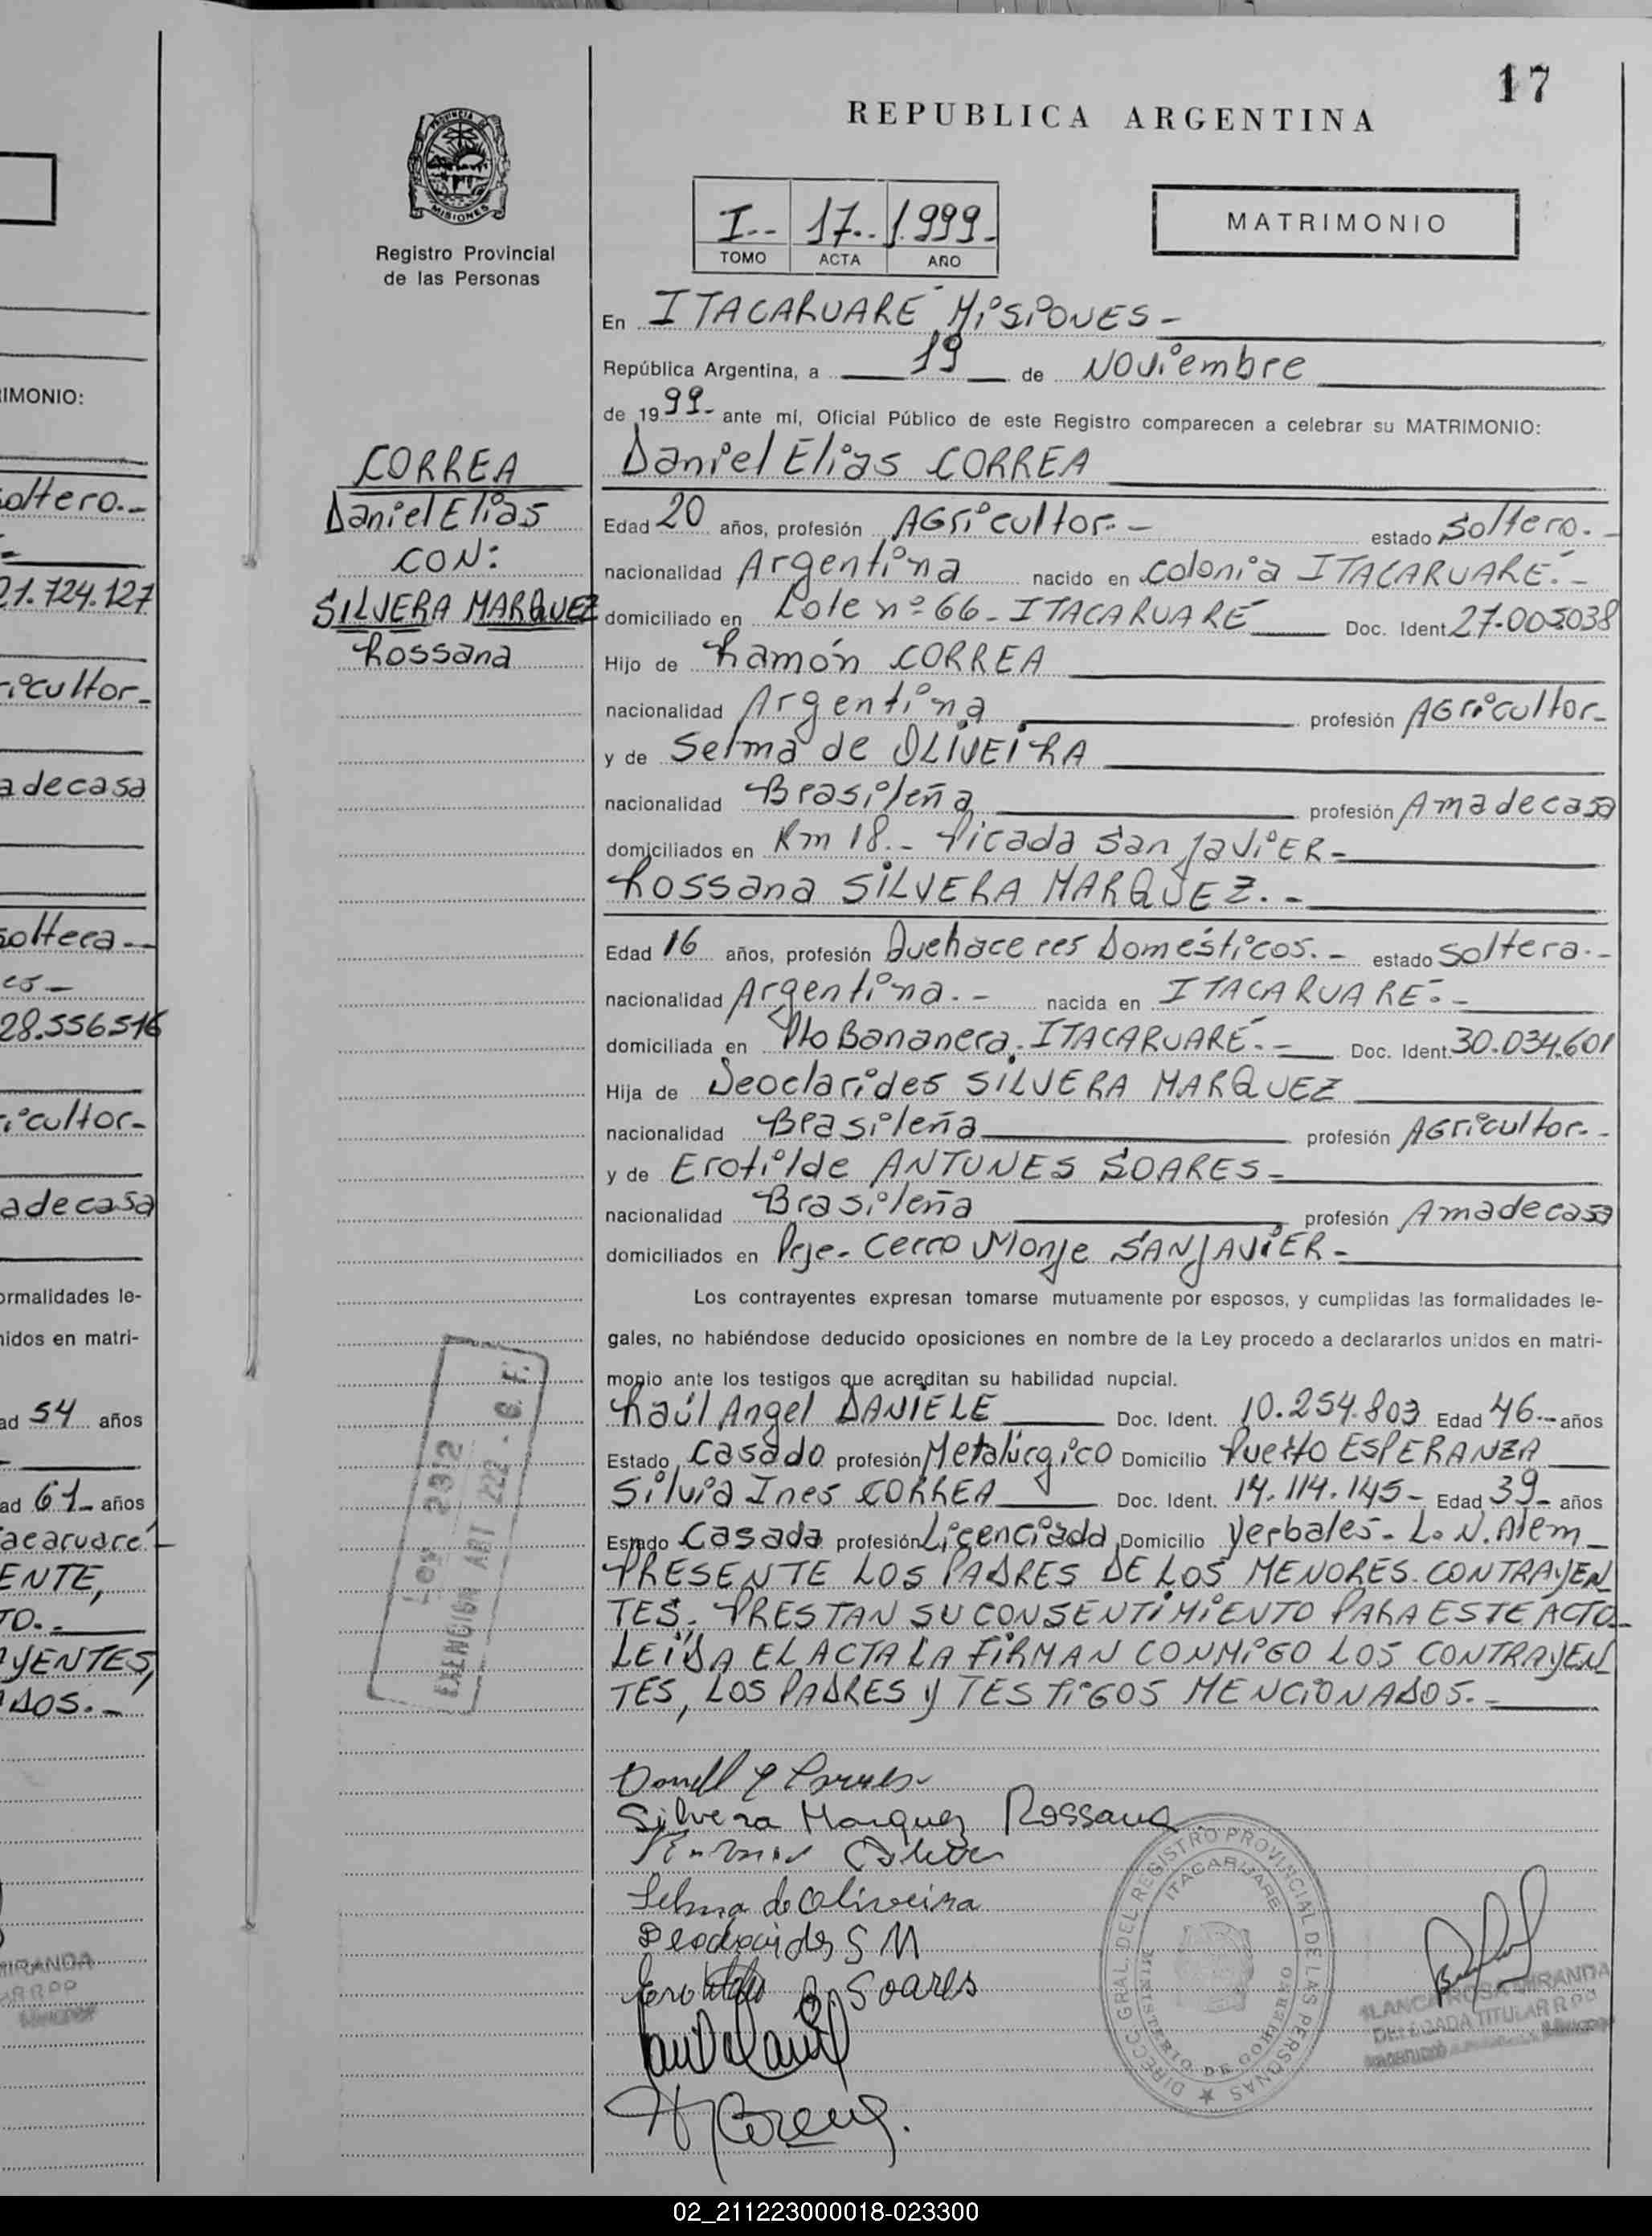 17
REPUBLICA ARGENTINA
PROVINCIA DE
MISIONES
Registro Provincial
de las Personas
I-- 17.- 1.999.-
TOMO ACTA AÑO
MATRIMONIO
En ITACARUARE MISIONES-
República Argentina, a 19 de Noviembre
de 1999- ante mí, Oficial Público de este Registro comparecen a celebrar su MATRIMONIO:
CORREA
Daniel Elias
CON:
SILVERA MARQUEZ
Rossana
Daniel Elias CORREA
Edad 20 años, profesión AGricultor.- estado Soltero.-
nacionalidad Argentina nacido en colonia ITACARUARÉ.-
domiciliado en Lote nº 66- ITACARUARÉ Doc. Ident. 27.005038
Hijo de Ramón CORREA
nacionalidad Argentina profesión AGricultor-
y de Selma de OLIVEIRA
nacionalidad Brasileña profesión Amadecasa
domiciliados en Km 18.- Picada San JaViER-
Rossana SILVERA MARQUEZ.-
Edad 16 años, profesión Quehaceres Domésticos.- estado Soltera.-
nacionalidad Argentina.- nacida en ITACARUARÉ.-
domiciliada en Pto Bananera. ITACARUARÉ.- Doc. Ident. 30.034.601
Hija de Deoclarides SILVERA MARQUEZ
nacionalidad Brasileña profesión AGricultor.-
y de Erotilde ANTUNES SOARES-
nacionalidad Brasileña profesión Amadecasa
domiciliados en Prje- Cerro Monje SAN JAVIER-
Los contrayentes expresan tomarse mutuamente por esposos, y cumplidas las formalidades le-
gales, no habiéndose deducido oposiciones en nombre de la Ley procedo a declararlos unidos en matri-
monio ante los testigos que acreditan su habilidad nupcial.
Raúl Angel DANIELE Doc. Ident. 10.254.803 Edad 46.- años
Estado Casado profesión Metalúrgico Domicilio Puerto ESPERANZA
Silvia Ines CORREA Doc. Ident. 14.114.145- Edad 39- años
Estado Casada profesión Licenciada Domicilio Yerbales- L. N. Alem-
PRESENTE LOS PADRES DE LOS MENORES CONTRAYEN
TES, PRESTAN SU CONSENTIMIENTO PARA ESTE ACTO-
LEIDA EL ACTA LA FIRMAN CONMIGO LOS CONTRAYEN
TES, LOS PADRES y TESTIGOS MENCIONADOS.-
Ley 2312
EXENCION ART 222 - C.F.
Silvera Marquez Rossana
Selma de Oliveira
Deoclarides S M
Soares
DIRECC GRAL. DEL REGISTRO PROVINCIAL DE LAS PERSONAS
ITACARUARE
MINISTERIO DE GOBIERNO
BLANCA ROSA MIRANDA
DELEGADA TITULAR R P P
IMONIO:
soltero.-
21.724.127
ricultor-
adecasa
soltera-
es-
28.556516
ricultor-
adecasa
ormalidades le-
nidos en matri-
ad 54 años
ad 61- años
tacaruaré-
ENTE,
TO.-
YENTES,
ADOS.-
MIRANDA
02_211223000018-023300